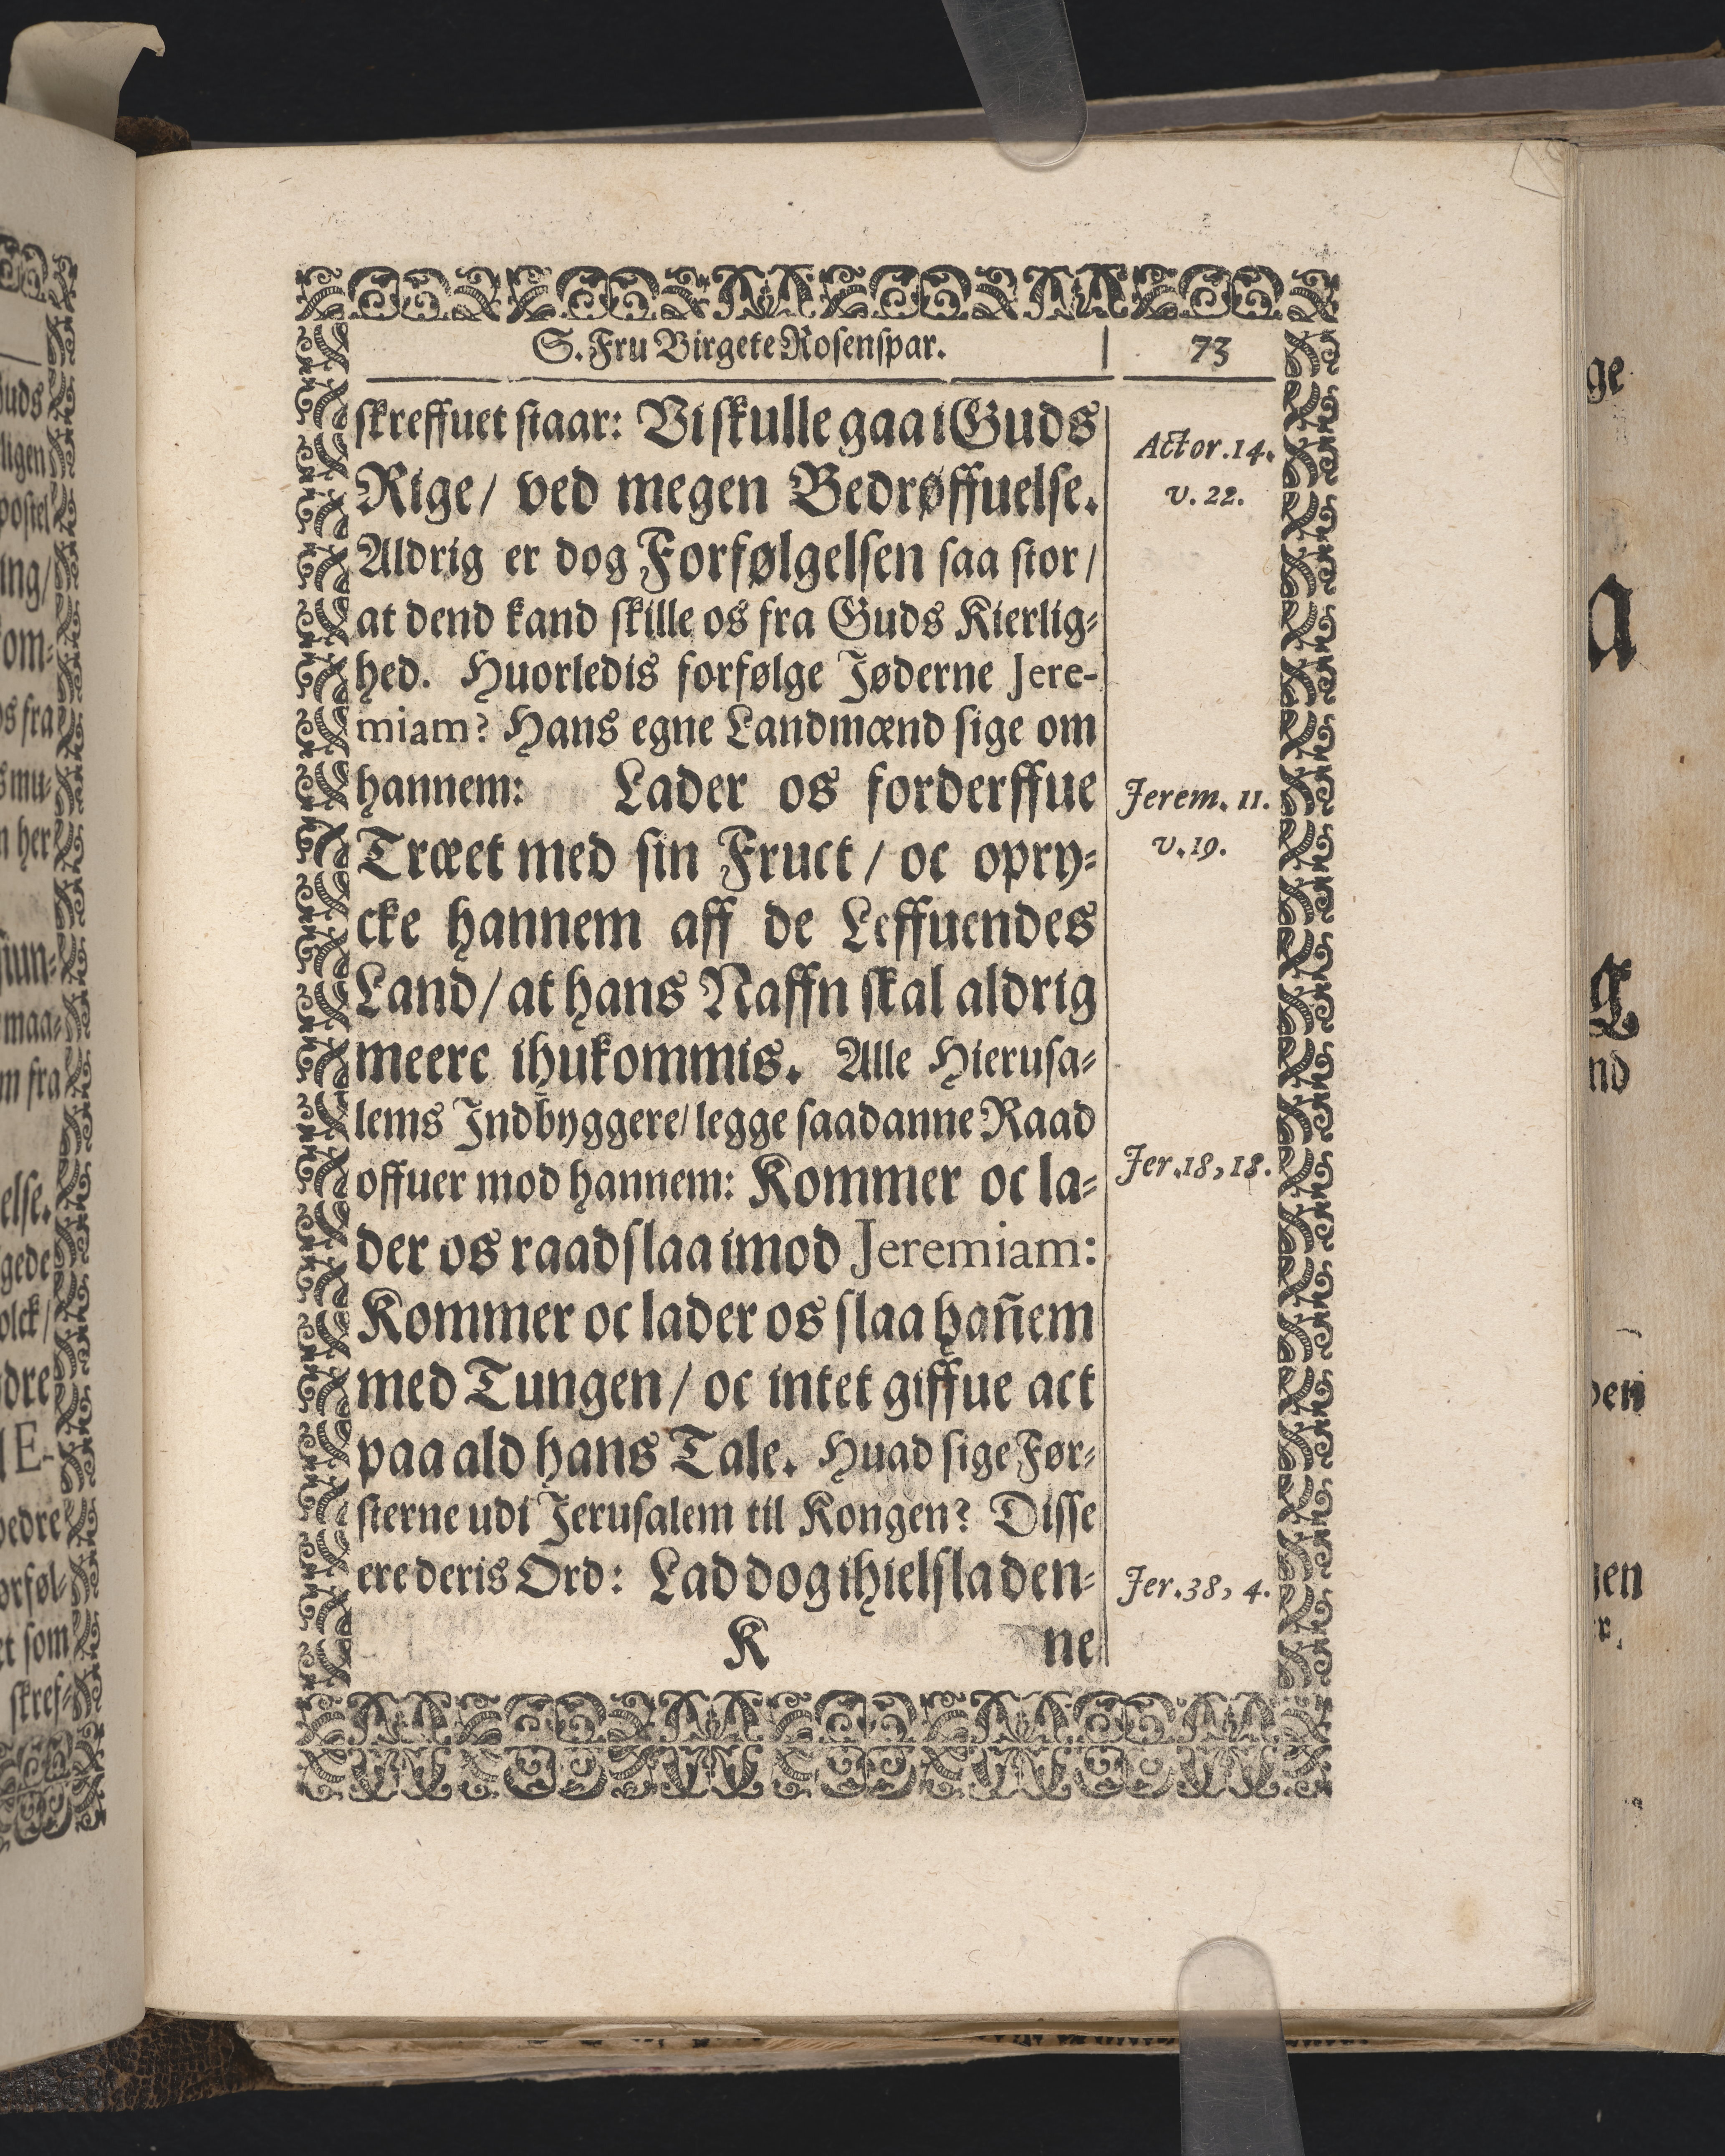 S. Fru Birgete Rosenspar. 73
skreffuet staar: Vi skulle gaa i Guds
Actor. 14.
Rige/ ved megen Bedrøffuelse.
v. 22.
Aldrig er dog Forfølgelsen saa stor/
at dend kand skille os fra Guds Kierlig-
hed. Huorledis forfølge Jøderne Jere-
miam? Hans egne Landmænd sige om
hannem: Lader os forderffue
Jerem. 11.
Træet med sin Fruct / oc opry-
v. 19.
cke hannem aff de Leffuendes
Land/ at hans Naffn skal aldrig
meere ihukommis. Alle Hierusa-
lems Indbyggere/ legge saadanne Raad
offuer mod hannem: Kommer oc la-
Jer. 18, 18.
der os raadslaa imod Jeremiam:
Kommer oc lader os slaa hañem
med Tungen/ oc intet giffue act
paa ald hans Tale. Huad sige Før-
sterne udi Jerusalem til Kongen? Disse
ere deris Ord: Lad dog ihielsla den-
Jer. 38, 4.
K ne